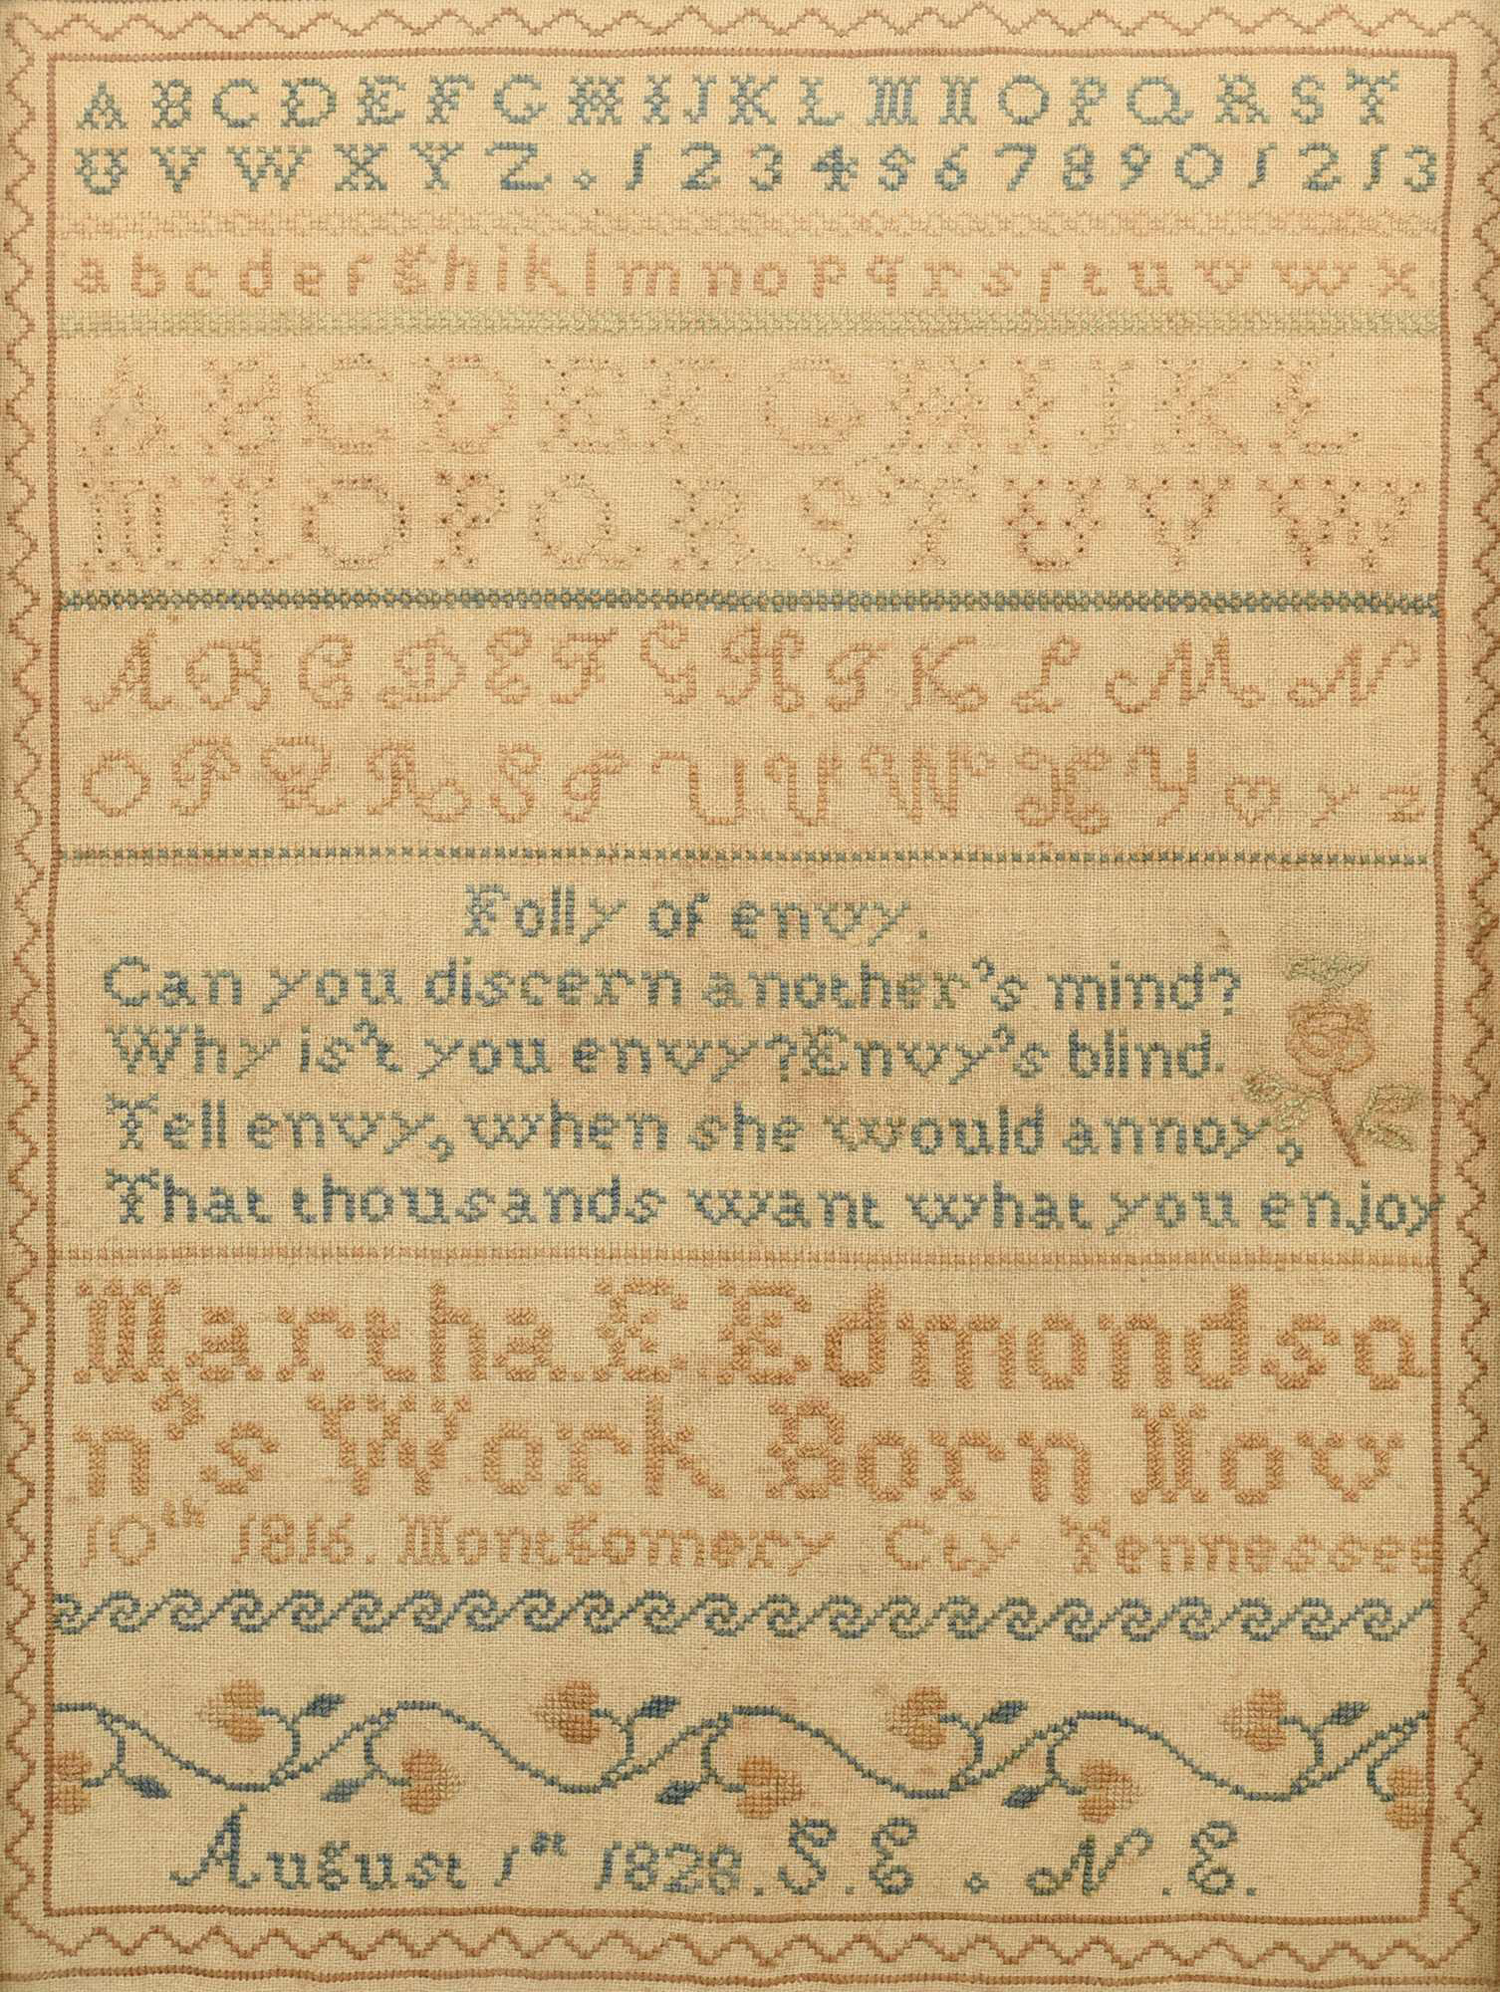 A B C D E F G H I J K L M N O P Q R S T
U V W X Y Z . 1 2 3 4 5 6 7 8 9 0 1 2 1 3
a b c d e f g h i k l m n o p q r s ſ t u v w x
A B C D E F G H I J K L
M N O P Q R S T U V W
A B C D E F G H I K L M N
O P Q R S T U V W X Y y z
Folly of envy.
Can you discern another's mind?
Why is't you envy? Envy's blind.
Tell envy, when she would annoy,
That thousands want what you enjoy
Martha E Edmondso
n's Work Born Nov
10th 1816. Montgomery Cty Tennessee
August 1st 1828. S. E . N. E.